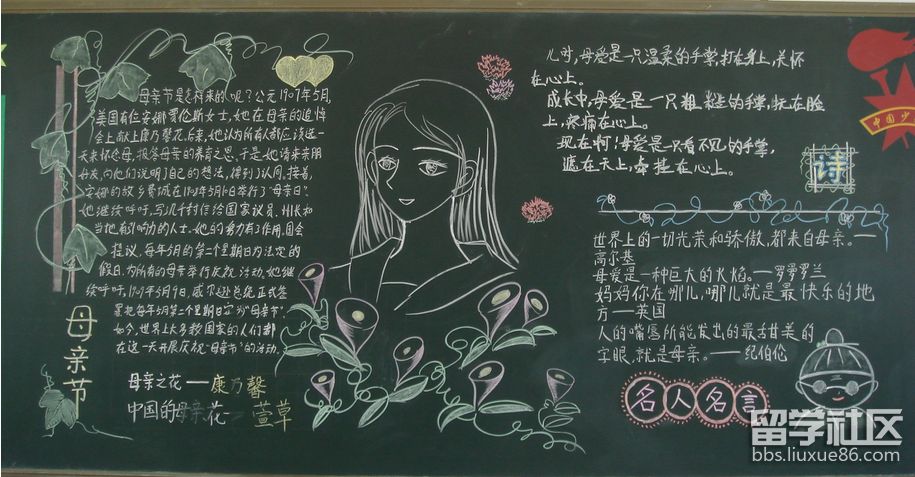 母亲节是怎样来的呢?公元1907年5月,
美国有位安娜贾伦斯女士,她在母亲的追悼
会上献上康乃馨花.后来,她认为所有人都应该选一
天来怀念母亲,报答母亲的养育之恩,于是她请来亲朋
好友,向他们说明了自己的想法,得到了认同,接着,
安娜的故乡费城在1908年5月10日举行了“母亲日”.
她继续呼吁,写几千封信给国家议员、州长和
当地有影响力的人士,她的努力有了作用,国会
提议,每年5月的第二个星期日为法定的
假日,为所有的母亲举行庆祝活动,她继
续呼吁,1914年5月9日,威尔逊总统正式签
署把每年5月第二个星期日定为“母亲节”.
如今,世界上大多数国家的人们都
在这一天开展庆祝“母亲节”的活动.
母亲节
母亲之花——康乃馨
中国的母亲花—萱草
儿时,母爱是一只温柔的手掌,打在身上,关怀
在心上。
成长中,母爱是一只粗糙的手掌,抚在脸
上,疼痛在心上。
现在啊!母爱是一只看不见的手掌,
遮在天上,牵挂在心上。
诗
中国少
世界上的一切光荣和骄傲,都来自母亲。—
高尔基
母爱是一种巨大的火焰。—罗曼罗兰
妈妈你在哪儿,哪儿就是最快乐的地
方——英国
人的嘴唇所能发出的最甜美的
字眼,就是母亲。——纪伯伦
名人名言
留学社区
bbs.liuxue86.com